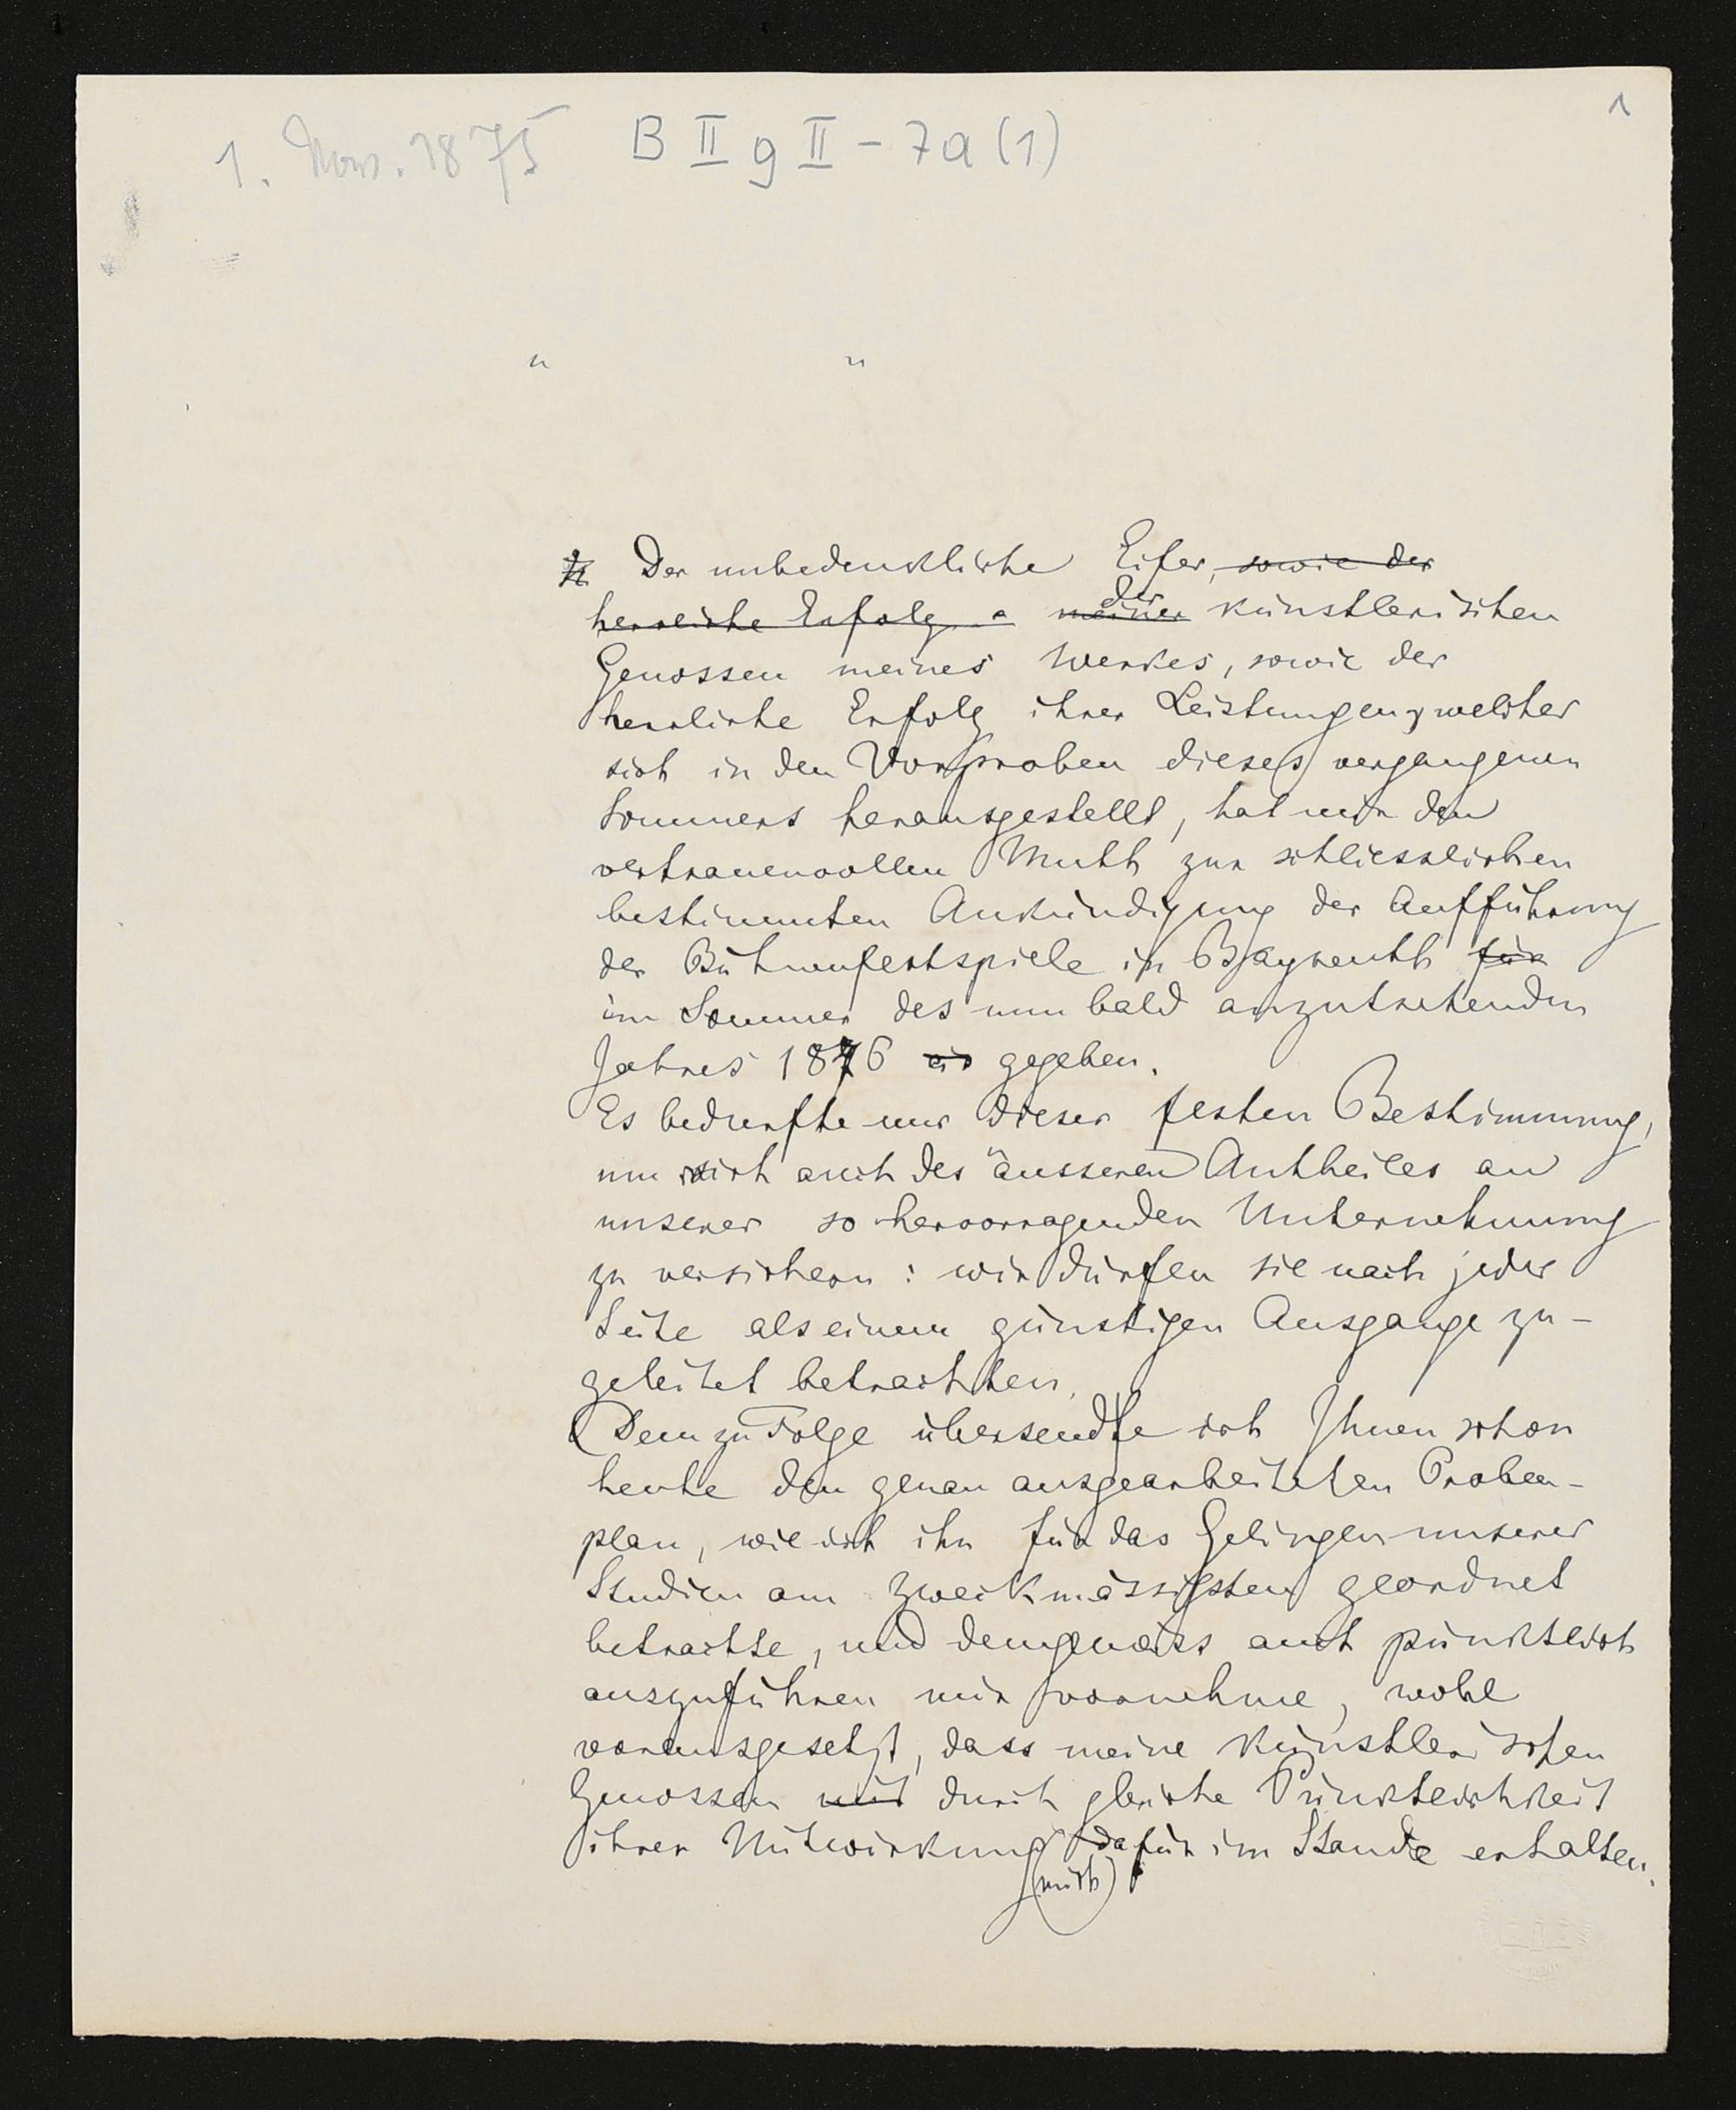 1
1. Nov. 1875 B II g II - 7a (1)
" "
Der unbedenkliche Eifer, sowie der
herrliche Erfolg meiner der künstlerischen
Genossen meines Werkes, sowie der
herrliche Erfolg ihrer Leistungen, welcher
sich in den Vorproben dieses vergangenen
Sommers herausgestellt, hat mir den
vertrauenvollen Muth zur schliesslichen
bestimmten Ankündigung der Aufführung
der Bühnenfestspiele in Bayreuth für
im Sommer des nun bald anzutretenden
Jahres 1876 gegeben.
Es bedurfte nur dieser festen Bestimmung,
um mich auch des äusseren Antheiles an
unserer so hervorragenden Unternehmung
zu versichern: wir dürfen sie nach jeder
Seite als einem günstigen Ausgange zu-
geleitet betrachten.
Dem zu Folge übersende ich Ihnen schon
heute den genau ausgearbeiteten Proben-
plan, wie ich ihn für das Gelingen unserer
Studien am zweckmässigsten geordnet
betrachte, und demgemäss auch pünktlich
auszuführen mir vornehme, wohl
vorausgesetzt, dass meine künstlerischen
Genossen mich durch gleiche Pünktlichkeit
ihrer Mitwirkung dafür im Stande erhalten.
(mich)